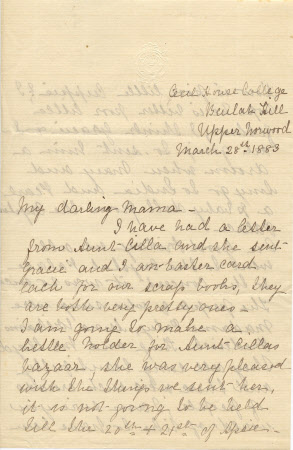 Cecil House College
Beulah Hill
Upper Norwood
March 28th 1883
My darling Mama -
I have had a letter
from Aunt Cilla and she sent
Gracie and I an Easter card
each for our scrap books, they
are both very pretty ones -
I am going to make a
kettle holder for Aunt Cillas
bazaar, she was very pleased
with the things we sent her,
it is not going to be held
till the 20th & 21st of